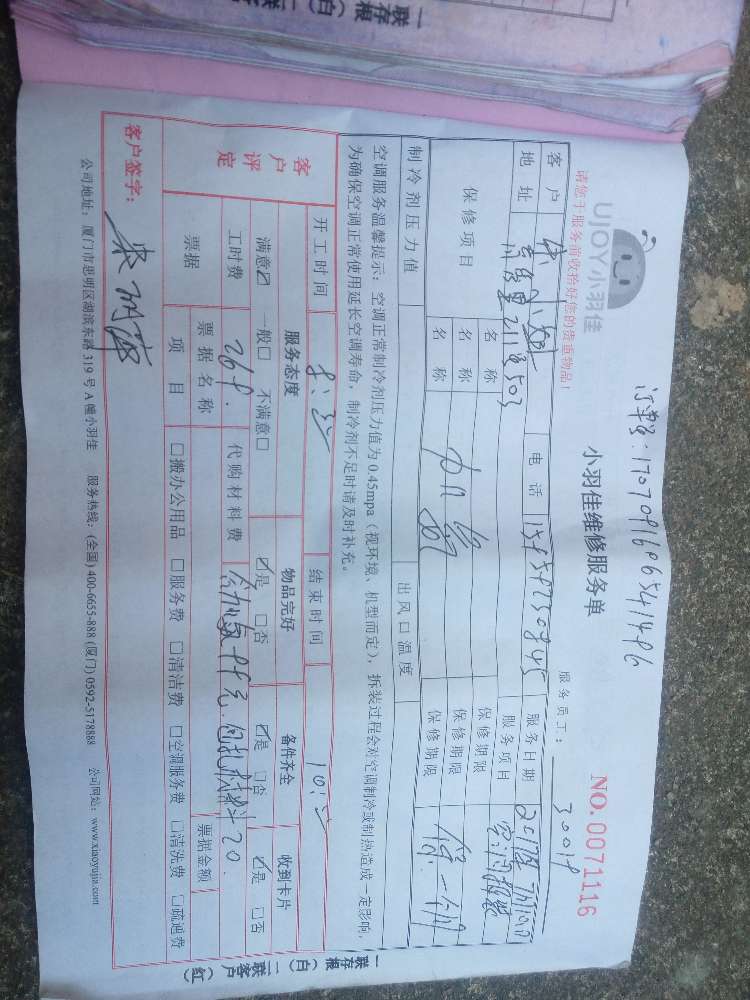 一联存根（白）二联
订单号：
UJOY小羽佳
小羽佳维修服务单
NO.0071116
请您于服务前收拾好您的贵重物品！
服务员工：
客户
电话
服务日期 2017年7月10日
地址
服务项目 空调拆装
保修项目
名称
保修期限
名称
保修期限
名称
保修期限
制冷剂压力值
出风口温度
空调服务温馨提示：空调正常制冷剂压力值为0.45mpa（视环境、机型而定），拆装过程会对空调制冷或制热造成一定影响，
为确保空调正常使用延长空调寿命，制冷剂不足时请及时补充。
客户评定
开工时间
结束时间
服务态度
物品完好
备件齐全
收到卡片
满意☑ 一般□ 不满意□
☑是 □否
☑是 □否
☑是 □否
工时费
代购材料费
票据
票据名称
票据金额
项目
□搬办公用品 □服务费 □清洁费 □空调服务费 □清洗费 □疏通费
客户签字：
公司地址：厦门市思明区湖滨东路319号A幢小羽佳 服务热线：(全国) 400-6655-888 (厦门) 0592-5178888 公司网站：www.xiaoyujia.com
一联存根（白）二联客户（红）